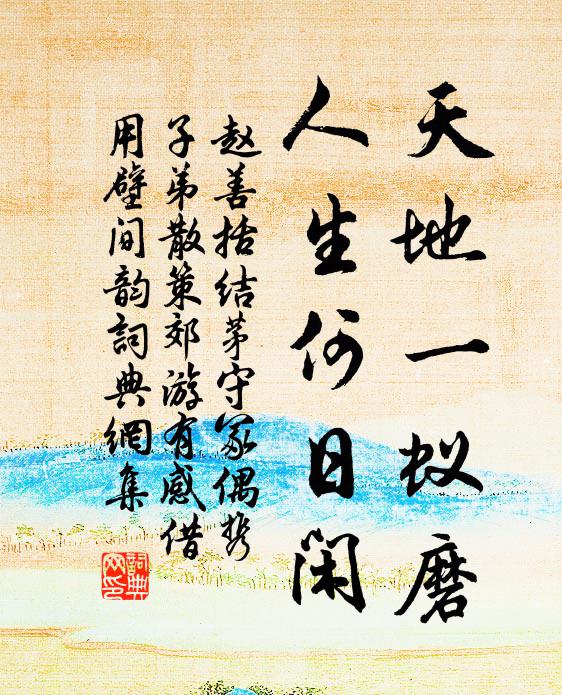 天地一蚁磨
人生何日闲
赵善括结茅守冢偶携
子弟散策郊游有感借
用壁间韵詞典網集
詞典